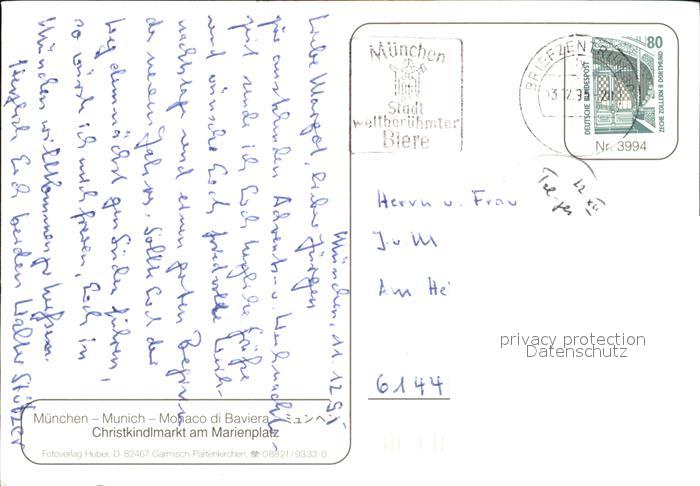 München, 11. 12. 95
Liebe Margot, lieber Jürgen
zur ausklingenden Advents- u. Weihnachts-
zeit sende ich Euch herzliche Grüße
und wünsche Euch friedvolle Weih-
nachtstage und einen guten Beginn
des neuen Jahres. Sollte Euch der
Weg demnächst gen Süden führen,
so würde ich mich freuen, Euch in
München willkommen zu heißen.
Herzlich Euch beiden Walter
München
Stadt
weltberühmter
Biere
BRIEFZENTRUM
80
DEUTSCHE BUNDESPOST
ZECHE ZOLLERN II DORTMUND
Nr. 3994
Herrn u. Frau
J. u. M
Am He
privacy protection
Datenschutz
6144
München – Munich – Monaco di Baviera – ミュンヘン
Christkindlmarkt am Marienplatz
Fotoverlag Huber, D-82467 Garmisch-Partenkirchen, ☎ 08821/9333-0